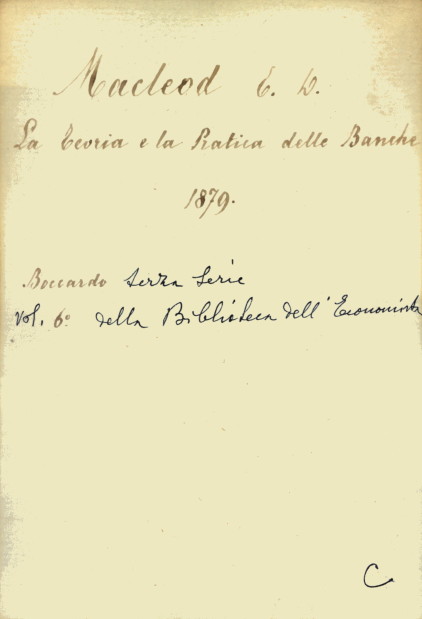 Macleod E. D.
La Teoria e la Pratica delle Banche
1879.
Boccardo terza serie
vol. 6º della Biblioteca dell'Economista
C